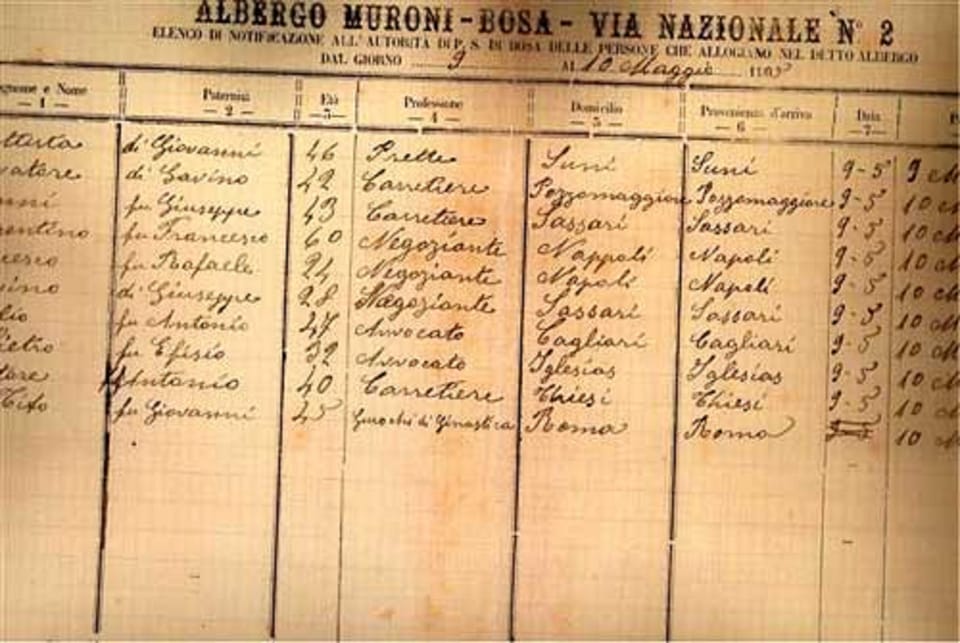 ALBERGO MURONI - BOSA - VIA NAZIONALE N° 2
ELENCO DI NOTIFICAZIONE ALL'AUTORITÀ DI P. S. DI BOSA DELLE PERSONE CHE ALLOGIANO NEL DETTO ALBERGO
DAL GIORNO 9 AL 10 Maggio
gnome e Nome Paternità Età Professione Domicilio Provenienza d'arrivo Data
— 1 — — 2 — — 3 — — 4 — — 5 — — 6 — — 7 —
di Giovanni 46 Prette Suni Suni 9-5 9 M
vatore di Gavino 42 Carretiere Pozzomaggiore Pozzomaggiore 9-5 10 M
nni fu Giuseppe 43 Carretiere Sassari Sassari 9-5 10 M
rentino fu Francesco 60 Negoziante Nappoli Napoli 9-5 10 M
cesco fu Rafaele 24 Negoziante Napoli Napoli 9-5 10 M
vino di Giuseppe 28 Negoziante Sassari Sassari 9-5 10 M
lio fu Antonio 47 Avvocato Cagliari Cagliari 9-5 10 M
ietro fu Efisio 32 Avvocato Iglesias Iglesias 9-5 10 M
tore Antonio 40 Carretiere Thiesi Thiesi 9-5 10 M
Tito fu Giovanni 45 Giuochi di Ginastica Roma Roma 10 M